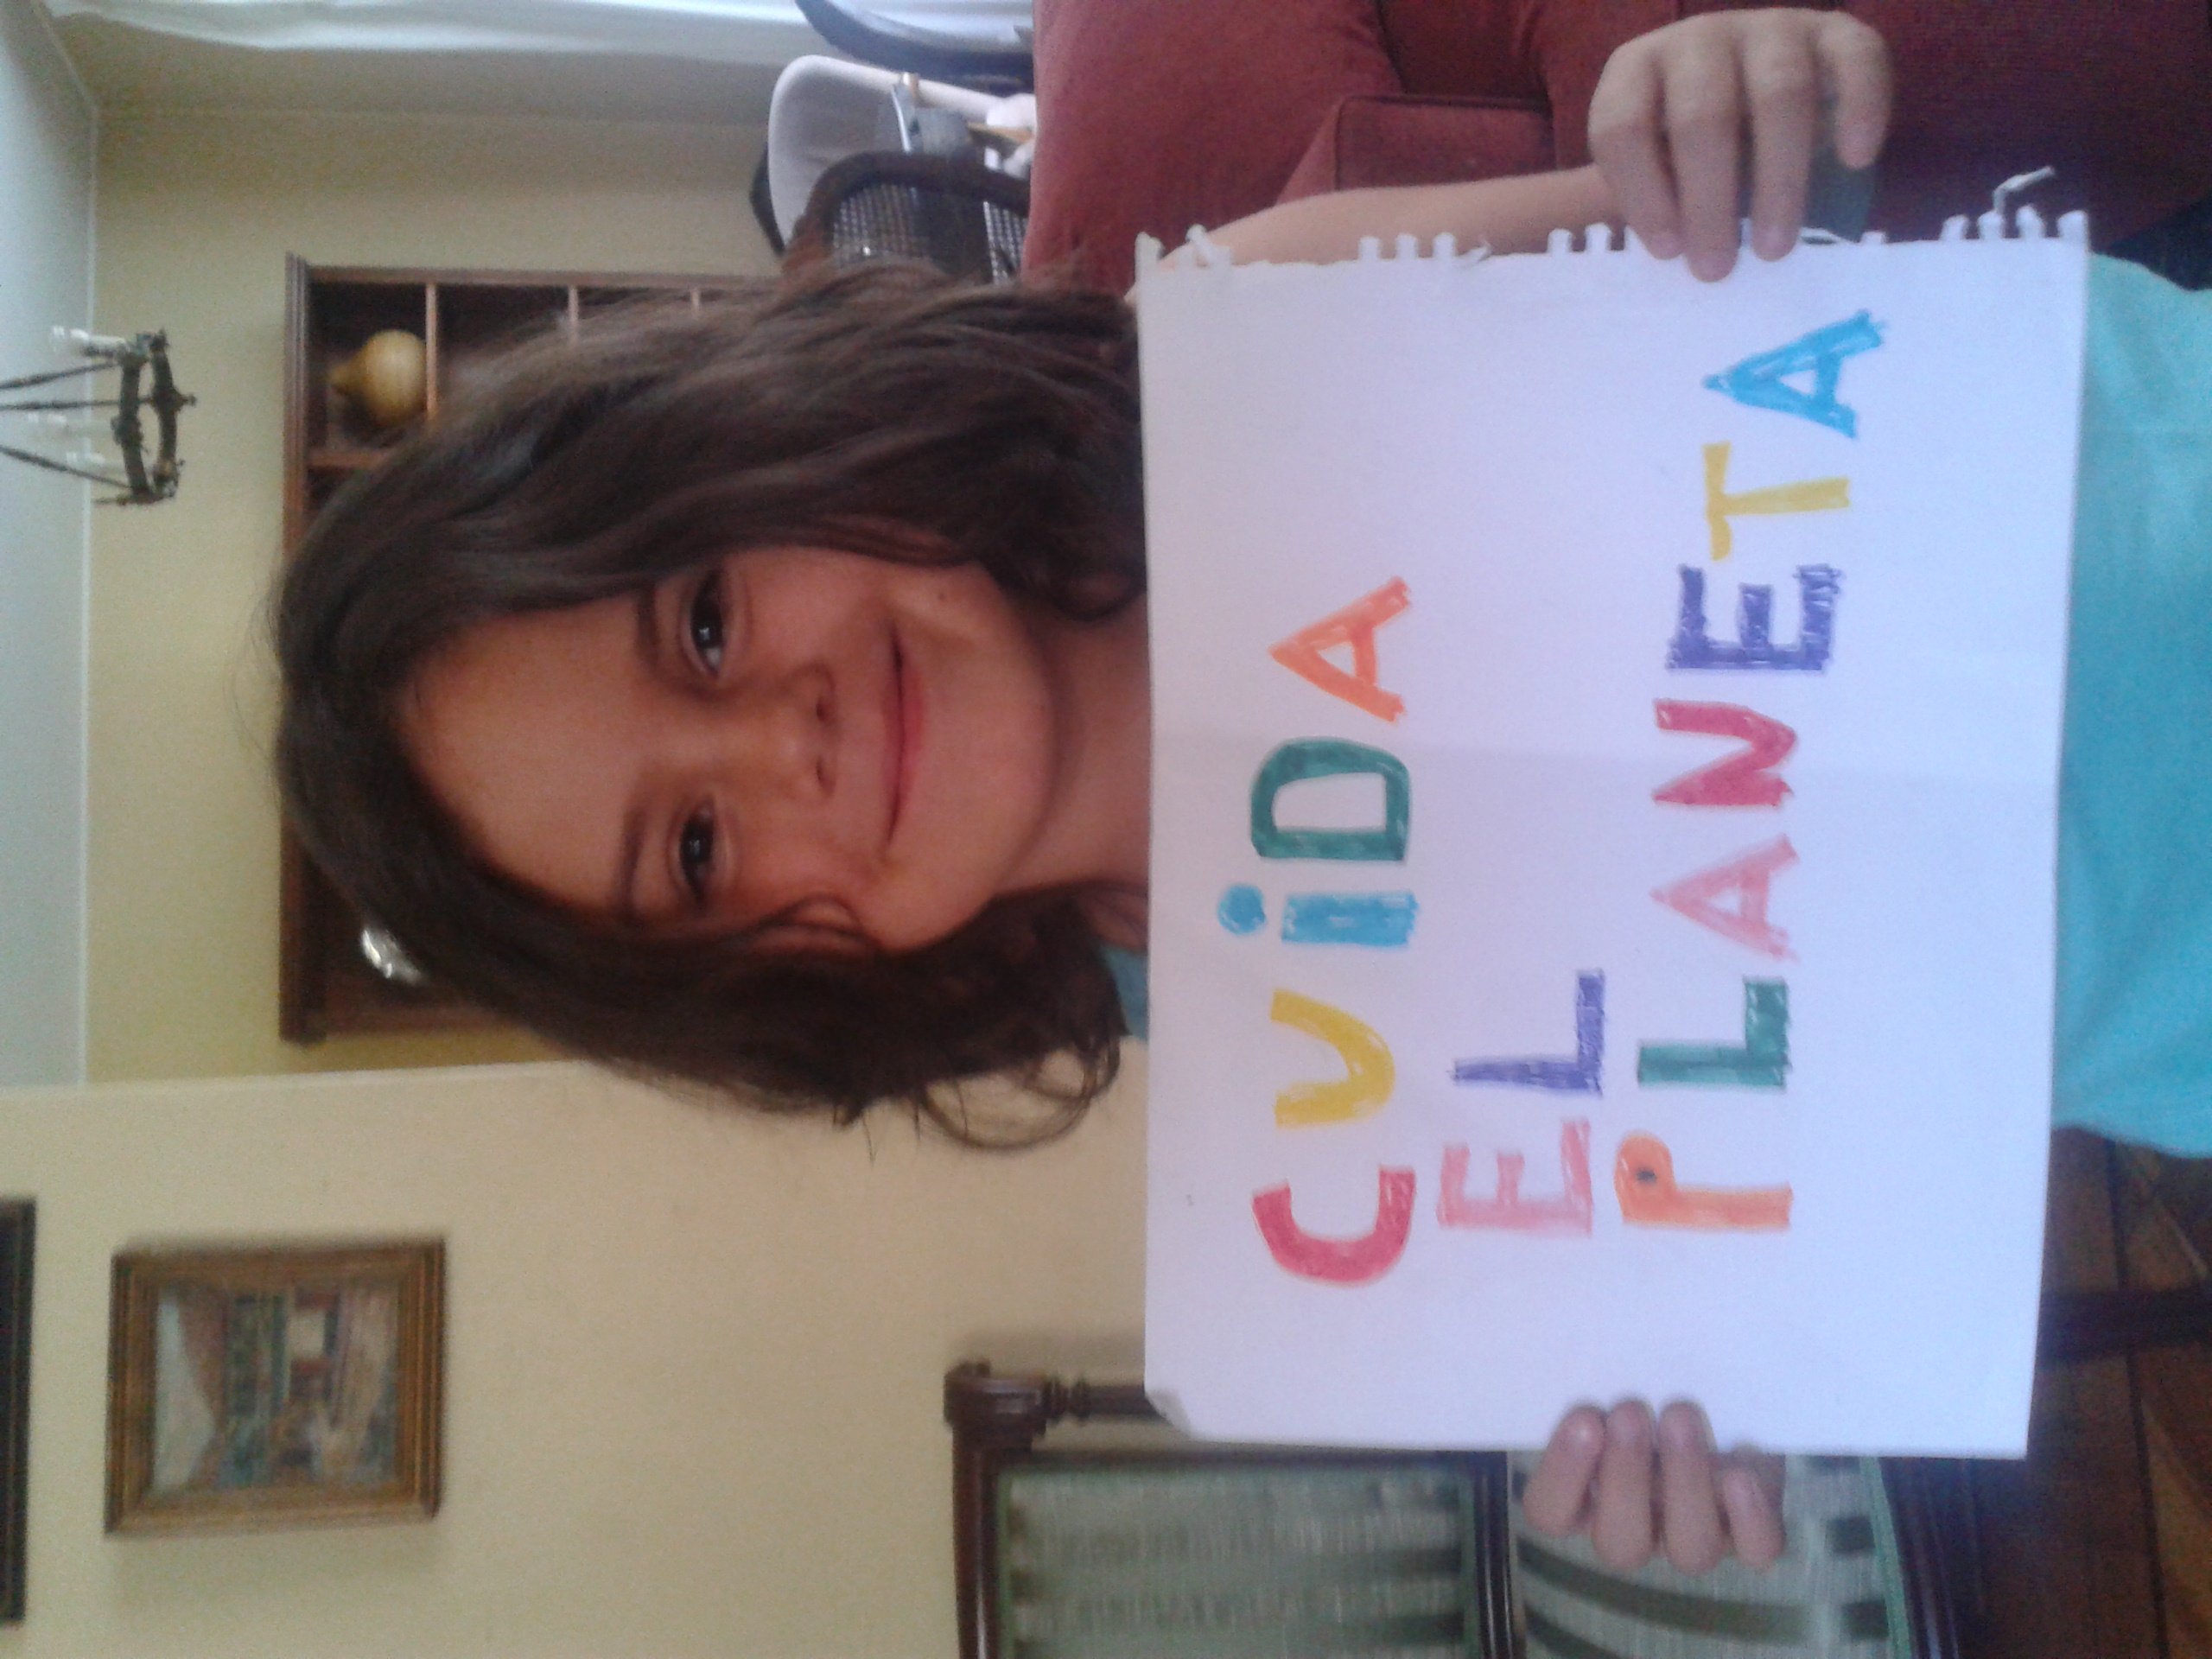 CUiDA
EL
PLANETA